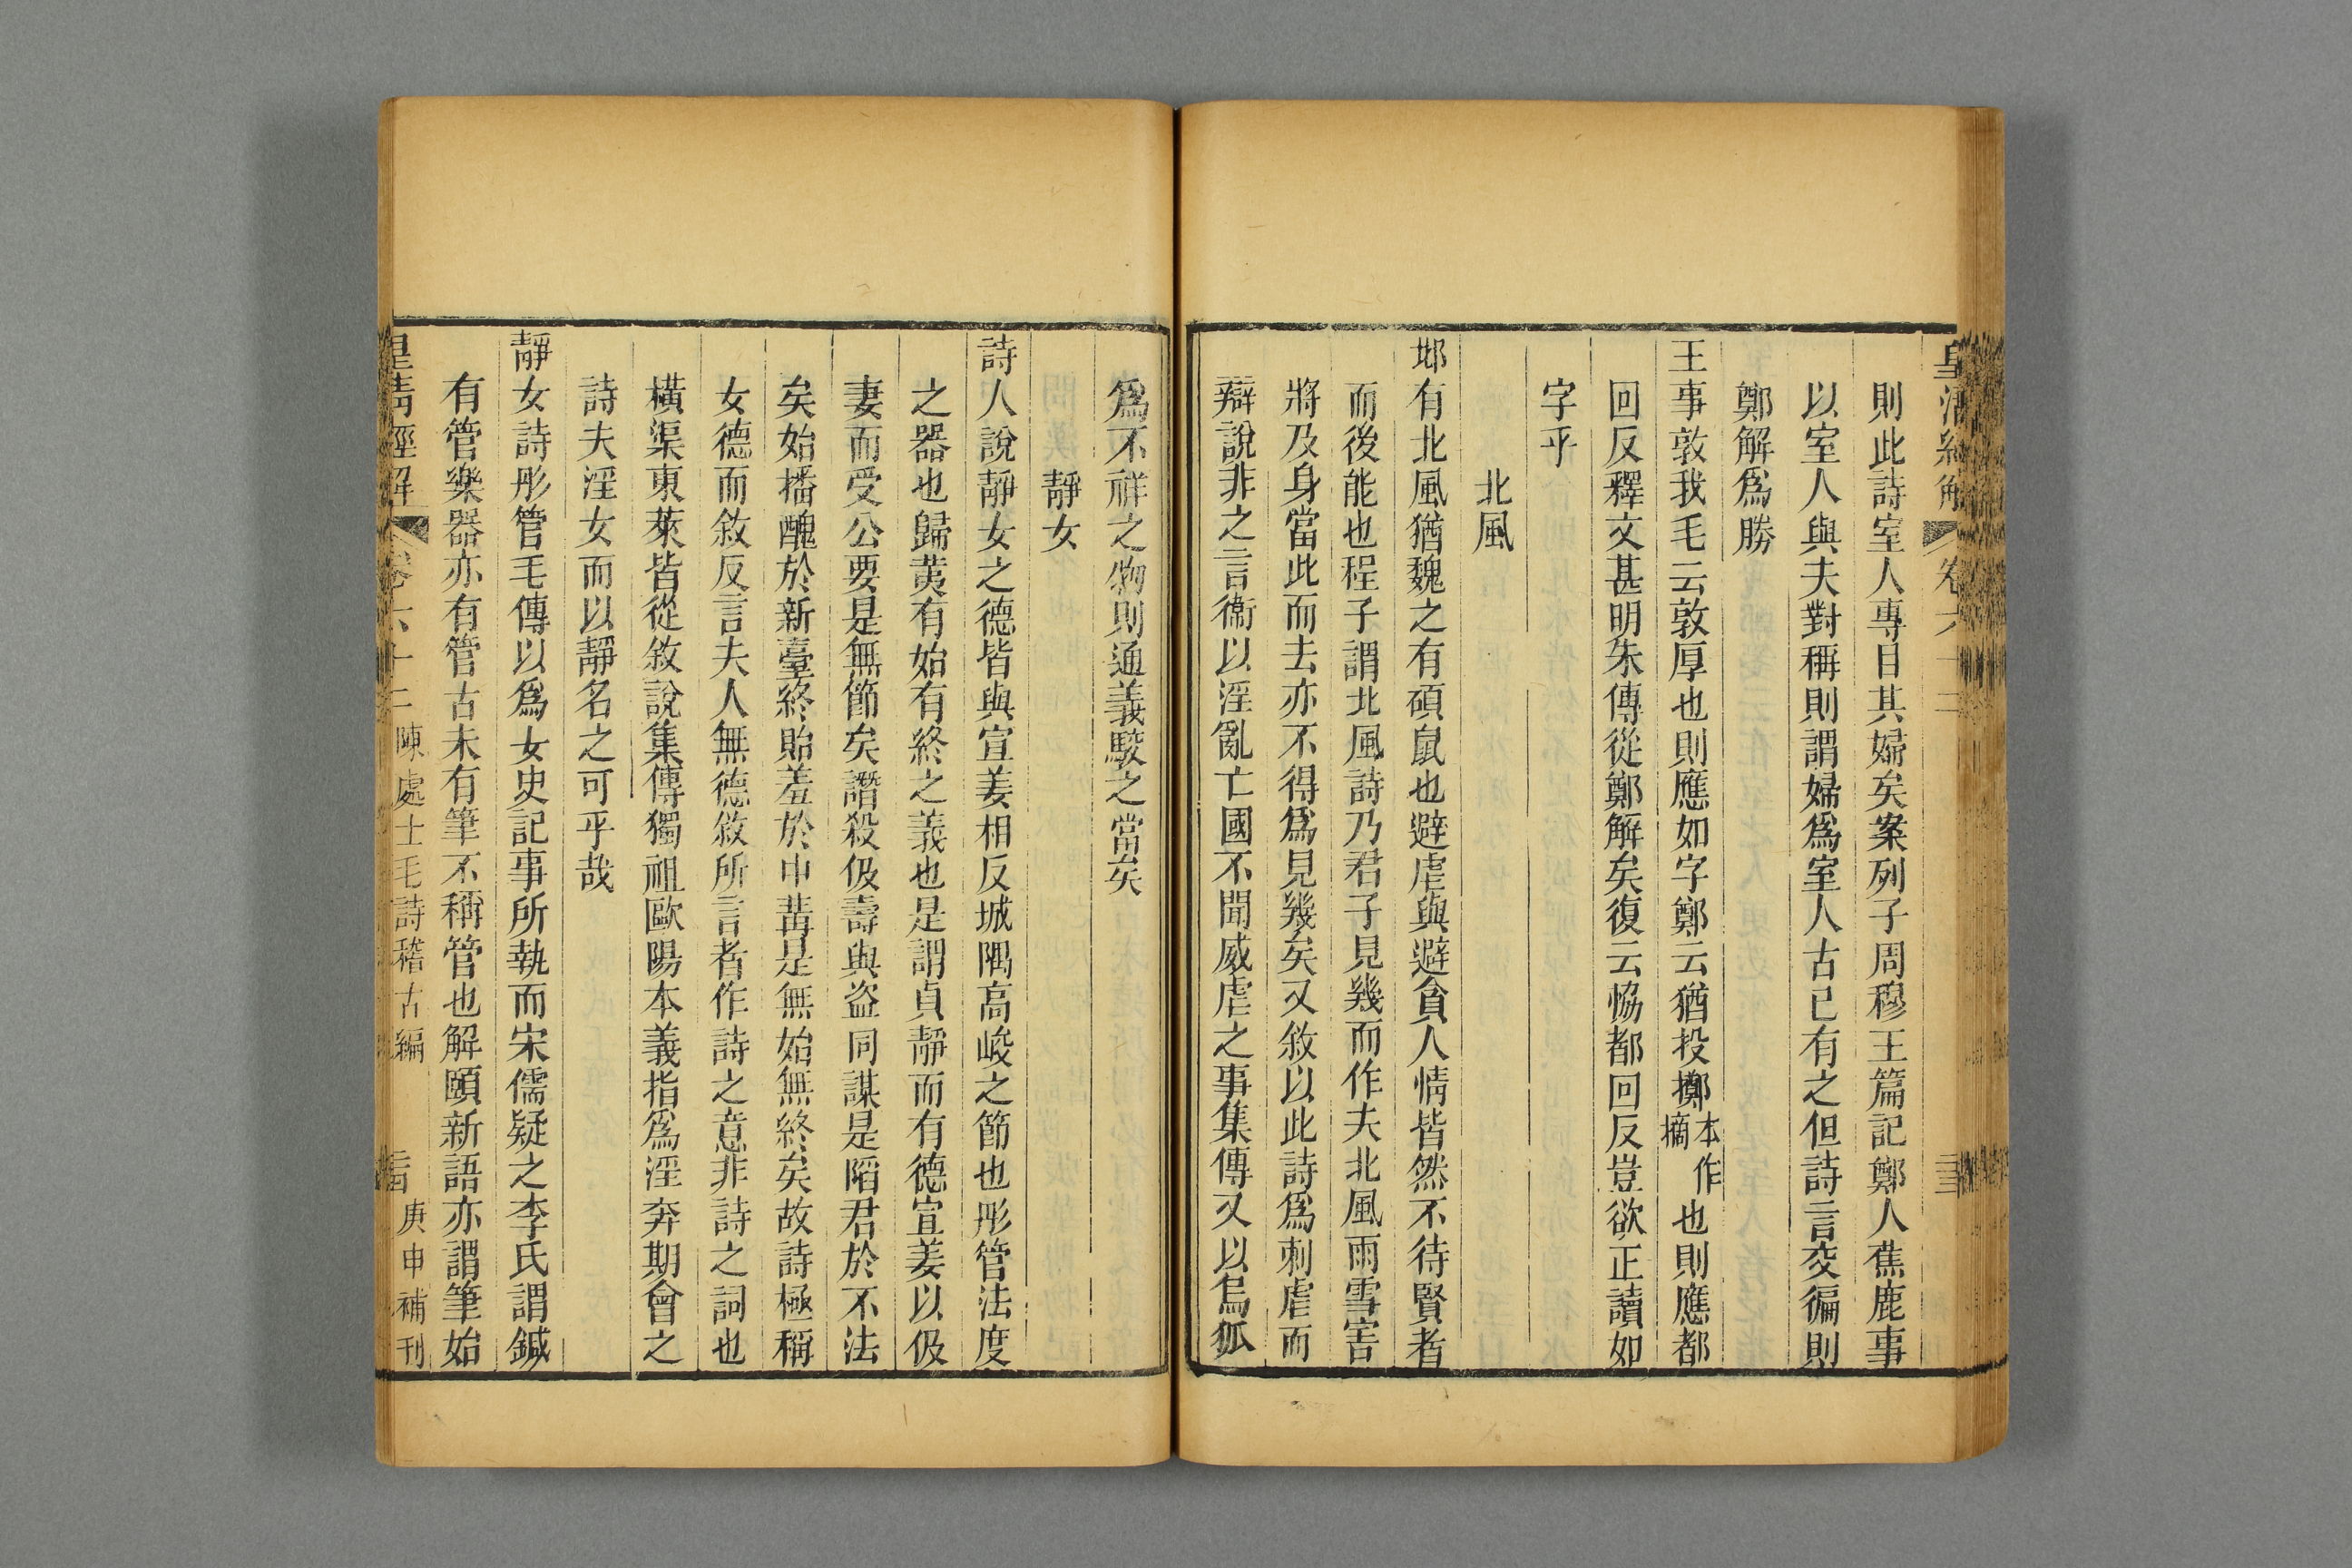 則此詩室人專目其婦矣案列子周穆王篇記鄭人蕉鹿事
以室人與夫對稱則謂婦爲室人古已有之但詩言交徧則
鄭解爲勝
王事敦我毛云敦厚也則應如字鄭云猶投擲本作擿也則應都
回反釋文甚明朱傳從鄭解矣復云恊都回反豈欲正讀如
字乎
北風
邶有北風猶魏之有碩鼠也避虐與避貪人情皆然不待賢者
而後能也程子謂北風詩乃君子見幾而作夫北風雨雪害
將及身當此而去亦不得爲見幾矣又敘以此詩爲刺虐而
辯說非之言衞以淫亂亡國不聞威虐之事集傳又以烏狐
爲不祥之物則通義駮之當矣
靜女
詩人說靜女之德皆與宣姜相反城隅高峻之節也彤管法度
之器也歸荑有始有終之義也是謂貞靜而有德宣姜以伋
妻而受公要是無節矣譖殺伋壽與盜同謀是陷君於不法
矣始播醜於新臺終貽羞於中冓是無始無終矣故詩極稱
女德而敘反言夫人無德敘所言者作詩之意非詩之詞也
橫渠東萊皆從敘說集傳獨祖歐陽本義指爲淫奔期會之
詩夫淫女而以靜名之可乎哉
靜女詩彤管毛傳以爲女史記事所執而宋儒疑之李氏謂鍼
有管樂器亦有管古未有筆不稱管也解頤新語亦謂筆始
皇清經解 卷六十二 陳處士毛詩稽古編 庚申補刊